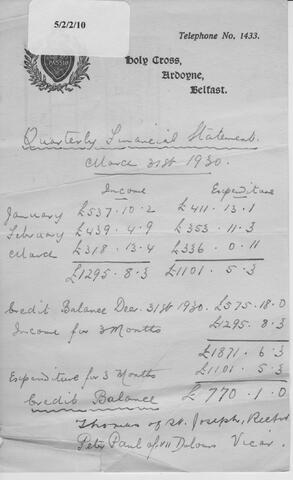 5/2/2/10
Telephone No. 1433.
Holy Cross,
Ardoyne,
Belfast.
Quarterly Financial Statement.
March 31st 1930.
Income Expenditure
January £537.10.2 £411.13.1
February £439.4.9 £353.11.3
March £318.13.4 £336.0.11
£1295.8.3 £1101.5.3
Credit Balance Dec. 31st 1930. £575.18.0
Income for 3 Months £1295.8.3
£1871.6.3
Expenditure for 3 Months £1101.5.3
Credit Balance £770.1.0
Thomas of St. Joseph, Rector
Peter Paul of VII Dolours Vicar.